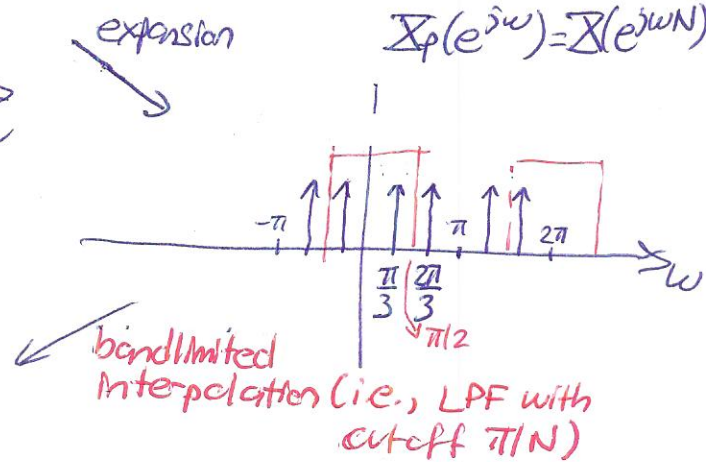 expansion
X_p(e^{jω})=X(e^{jωN})
1
-π
π
2π
ω
π/3
2π/3
π/2
bandlimited
interpolation (i.e., LPF with
cutoff π/N)